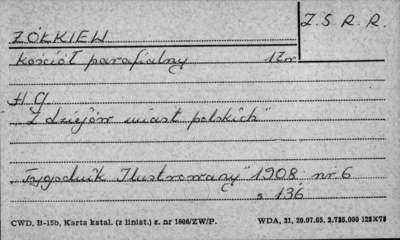 Z.S.R.R.
ŻÓŁKIEW
kościół parafialny
H G
"Z dziejów miast polskich"
"Tygodnik Ilustrowany" 1908 nr 6
s 136
CWD, B-15b, Karta katal. (z liniat.) z. nr 1606/ZW/P. WDA, 31, 20.07.65. 2.725.000 125X75